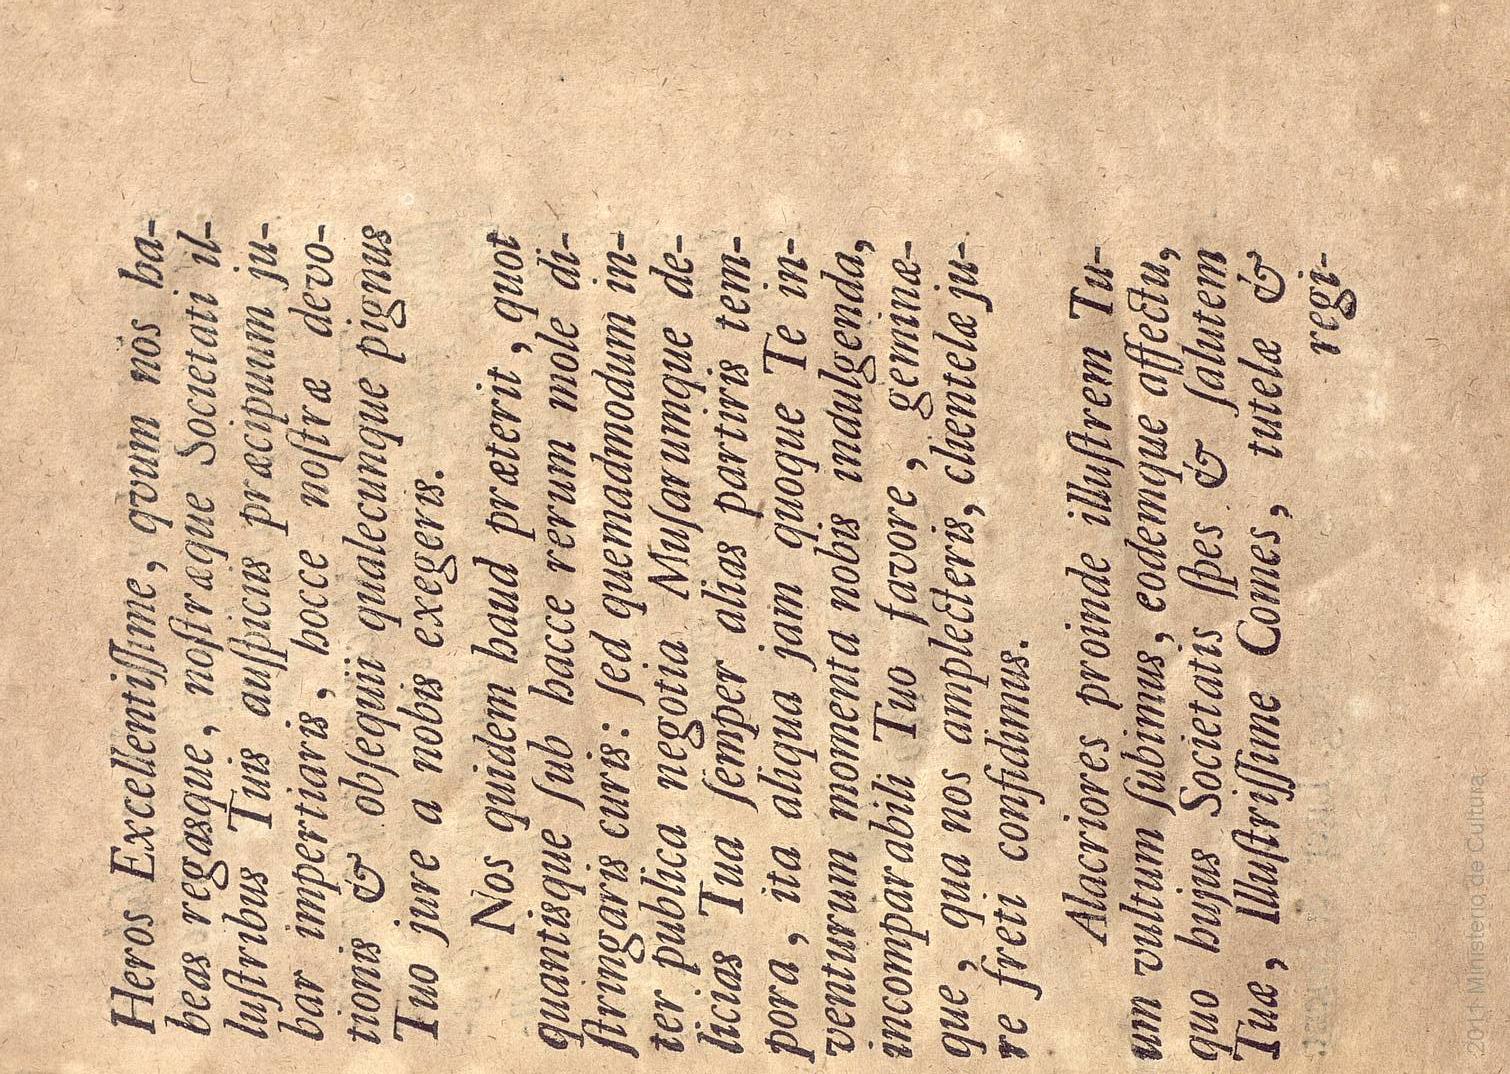 Heros Excellentiſſime, qvum nos ha-
beas regasque, noſtræque Societati il-
luſtribus Tuis auſpiciis præcipuum ju-
bar impertiaris, hocce noſtræ devo-
tionis & obſequii qualecunque pignus
Tuo jure a nobis exegeris.
Nos quidem haud præterit, quot
quantisque ſub hacce rerum mole di-
ſtringaris curis: ſed quemadmodum in-
ter publica negotia Muſarumque de-
licias Tua ſemper alias partiris tem-
pora, ita aliqua jam quoque Te in-
venturum momenta nobis indulgenda,
incomparabili Tuo favore, geminæ-
que, qua nos amplecteris, clientelæ ju-
re freti confidimus.
Alacriores proinde illuſtrem Tu-
um vultum ſubimus, eodemque affectu,
quo hujus Societatis ſpes & ſalutem
Tuæ, Illuſtriſſime Comes, tutelæ &
regi-
2011 Ministerio de Cultura